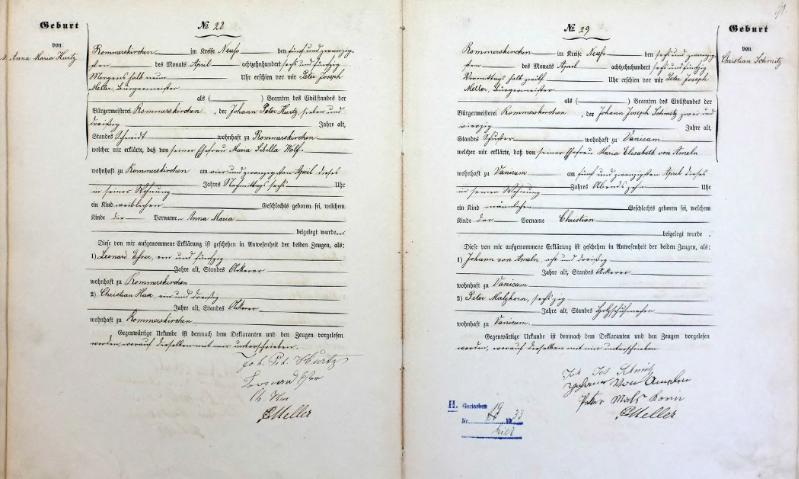 Geburt
№ 22
von
Anna Maria Hurtz
Rommerskirchen im Kreise Neuss den fünf und zwanzig-
sten des Monats April achtzehnhundert sechs und fünfzig
Morgens halb neun Uhr erschien vor mir Peter Joseph
Meller, Bürgermeister
als ( ) Beamten des Civilstandes der
Bürgermeisterei Rommerskirchen, der Johann Peter Hurtz, sieben und
dreißig Jahre alt,
Standes Schmidt wohnhaft zu Rommerskirchen
welcher mir erklärte, daß von seiner Ehefrau Maria Sibilla Wolf
wohnhaft zu Rommerskirchen am vier und zwanzigsten April dieses
Jahres Nachmittags sechs Uhr
in seiner Wohnung
ein Kind weiblichen Geschlechts geboren sei, welchem
Kinde die Vornamen Anna Maria
beigelegt wurde..
Diese von mir aufgenommene Erklärung ist geschehen in Anwesenheit der beiden Zeugen, als:
1) Leonard ein und fünfzig
Jahre alt, Standes Ackerer
wohnhaft zu Rommerskirchen
2) Christian ein und dreißig
Jahre alt, Standes Ackerer
wohnhaft zu Rommerskirchen
Gegenwärtige Urkunde ist demnach dem Deklaranten und den Zeugen vorgelesen
worden, worauf dieselben mit mir unterschrieben.
Joh. Pet. Hurtz
Leonard
PMeller
№ 29
Geburt
von
Christian Schmitz
Rommerskirchen im Kreise Neuss den sechs und zwanzig-
sten des Monats April achtzehnhundert sechs und fünfzig
Vormittags halb zwölf Uhr erschien vor mir Peter Joseph
Meller, Bürgermeister
als ( ) Beamten des Civilstandes der
Bürgermeisterei Rommerskirchen, der Johann Joseph Schmitz zwei und
vierzig Jahre alt,
Standes Schuster wohnhaft zu Vanicum
welcher mir erklärte, daß von seiner Ehefrau Maria Elisabeth von Ameln
wohnhaft zu Vanicum am fünf und zwanzigsten April dieses
Jahres Abends zehn Uhr
in seiner Wohnung
ein Kind männlichen Geschlechts geboren sei, welchem
Kinde der Vorname Christian
beigelegt wurde.
Diese von mir aufgenommene Erklärung ist geschehen in Anwesenheit der beiden Zeugen, als:
1) Johann von Ameln, acht und dreißig
Jahre alt, Standes Ackerer
wohnhaft zu Vanicum
2) Peter Malzkorn, sechszig
Jahre alt, Standes Holzschuhmacher
wohnhaft zu Vanicum
Gegenwärtige Urkunde ist demnach dem Deklaranten und den Zeugen vorgelesen
worden, worauf dieselben mit mir unterschrieben
Joh Jos Schmitz
Johann Von Ameln
Peter Mals korn
PMeller
H. Gestorben
Nr. 19 33
hier